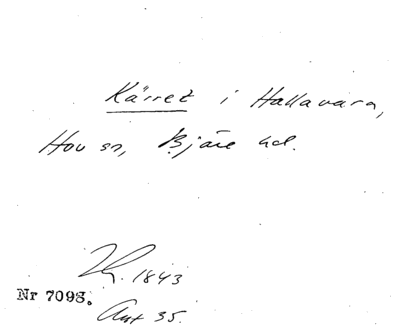 Kärret i Hallavara,
Hov sn, Bjäre hd.
1843
Nr 7098.
Akt 35.